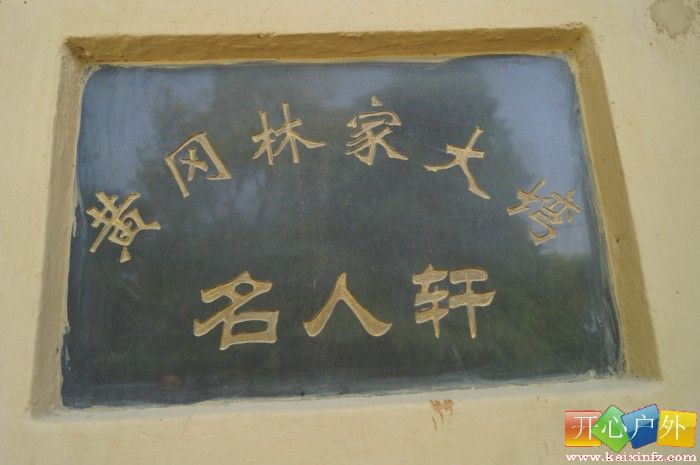 黄冈林家大塆
名人轩
开心户外
www.kaixinfz.com